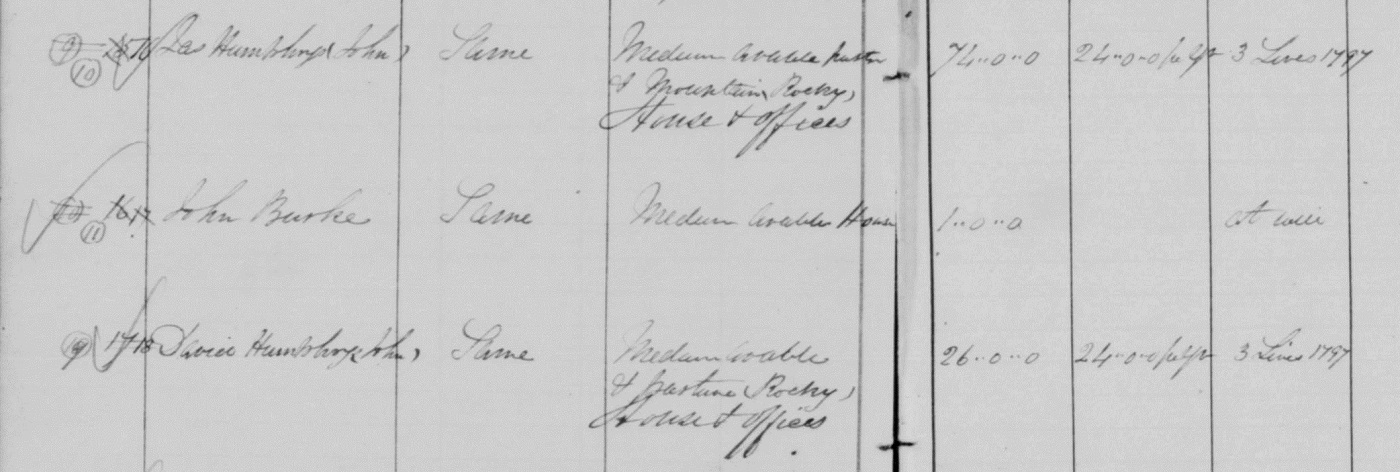 10 16 Jas Humphrys (John) Same Medium Arable pasture 74..0..0 3 Lives 1797
& Mountain (Rocky)
House & offices
11 17 John Burke Same Medium Arable House 1..0..0 at will
17 18 David Humphrys (John) Same Medium Arable 26..0..0 3 Lives 1797
& pasture (Rocky)
House & offices